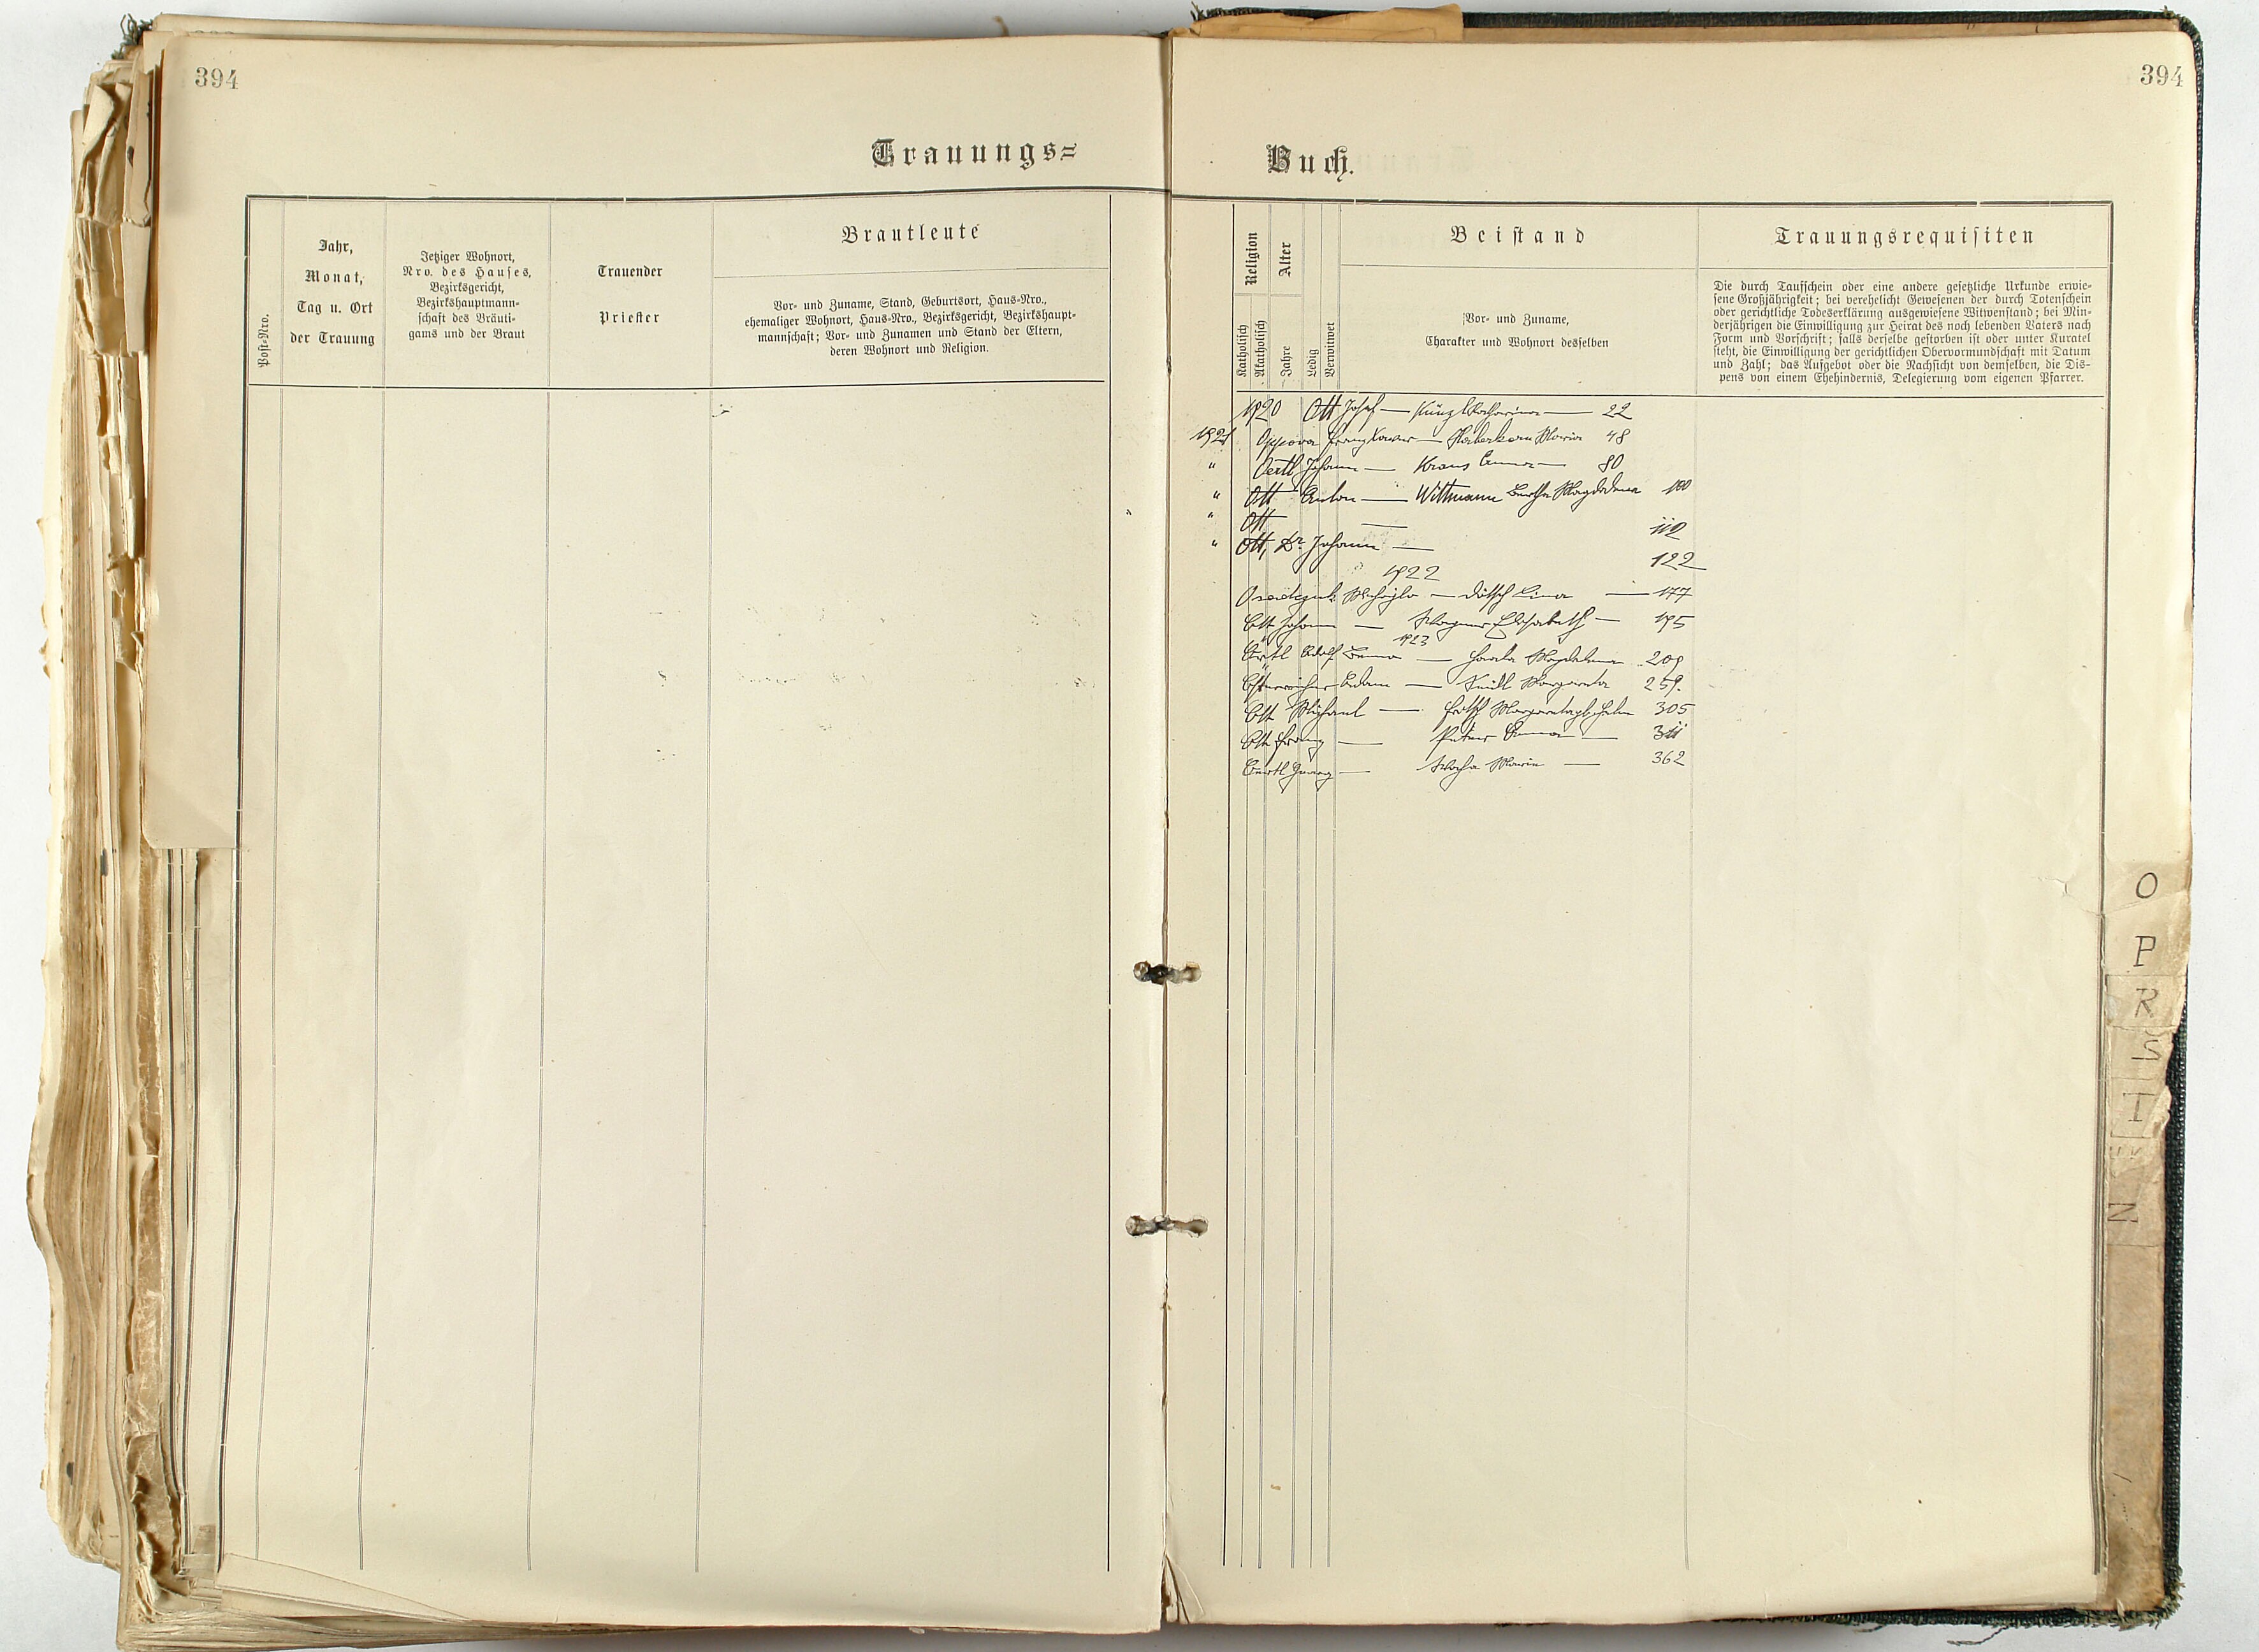 394
Trauungs=
Post-Nro.
Jahr,
Monat,
Tag u. Ort
der Trauung
Jetziger Wohnort,
Nro. des Hauses,
Bezirksgericht,
Bezirkshauptmann-
schaft des Bräuti-
gams und der Braut
Trauender
Priester
Brautleute
Vor- und Zuname, Stand, Geburtsort, Haus-Nro.,
ehemaliger Wohnort, Haus-Nro., Bezirksgericht, Bezirkshaupt-
mannschaft; Vor- und Zunamen und Stand der Eltern,
deren Wohnort und Religion.
394
Buch.
Religion
Katholisch
Akatholisch
Alter
Jahre
Ledig
Verwitwet
Beistand
Vor- und Zuname,
Charakter und Wohnort desselben
Trauungsrequisiten
Die durch Taufschein oder eine andere gesetzliche Urkunde erwie-
sene Großjährigkeit; bei verehelicht Gewesenen der durch Totenschein
oder gerichtliche Todeserklärung ausgewiesene Witwenstand; bei Min-
derjährigen die Einwilligung zur Heirat des noch lebenden Vaters nach
Form und Vorschrift; falls derselbe gestorben ist oder unter Kuratel
steht, die Einwilligung der gerichtlichen Obervormundschaft mit Datum
und Zahl; das Aufgebot oder die Nachsicht von demselben, die Dis-
pens von einem Ehehindernis, Delegierung vom eigenen Pfarrer.
1920 Ott Josef — Künzl Katharina — 22
1921 Franz Xaver — Maria 48
" Oertl Johann — Kraus Anna — 80
" Ott Anton — Wittmann Bertha Magdalena 100
" Ott — 112
" Ott, Dr Johann — 122
1922
— Lina — 177
Ott Johann — Wagner Elisabeth — 195
1923
Örtl Adolf — Magdalena 209
Österreicher Adam — Margareta 259.
Ott Michael — 305
Ott Franz — Peter Anna — 311
Oertl Georg — Marie — 362
O
P
R
S
T
N